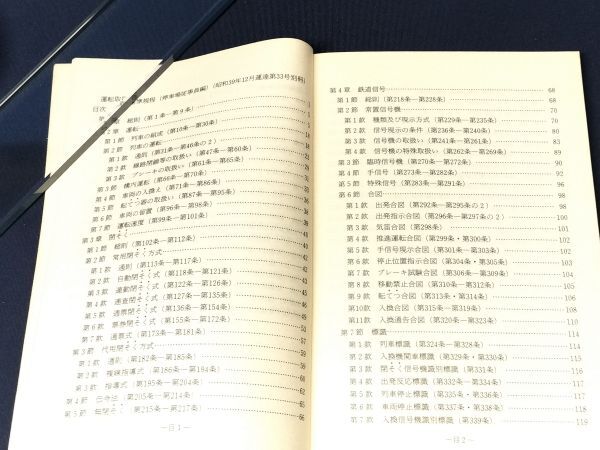 運転取 準規程（停車場従事員編）（昭和39年12月運達第33号別冊）
目次
第 総則（第1条―第9条）
第2章 運転
第1節 列車の組成（第10条―第30条）
第2節 列車の運転
第1款 通則（第31条―第46条の2）
第2款 線路閉鎖等の取扱い（第47条―第60条）
第3款 ブレーキの取扱い（第61条―第65条）
第3節 構内運転（第66条―第70条）
第4節 車両の入換え（第71条―第86条）
第5節 転てつ器の取扱い（第87条―第95条）
第6節 車両の留置（第96条―第98条）
第7節 運転速度（第99条―第101条）
第3章 閉そく
第1節 総則（第102条―第112条）
第2節 常用閉そく方式
第1款 通則（第113条―第117条）
第2款 自動閉そく式（第118条―第121条）
第3款 連動閉そく式（第122条―第126条）
第4款 連査閉そく式（第127条―第135条）
第5款 通票閉そく式（第136条―第154条）
第6款 票券閉そく式（第155条―第172条）
第7款 通票式（第173条―第181条） 57
第3節 代用閉そく方式 59
第1款 通則（第182条―第185条） 59
第2款 指導通信式（第186条―第194条）
第3款 指導式（第195条―第204条）
第4節 伝令法（第205条―第214条）
第5節 無閉そく（第215条―第217条） 66
―目1―
第4章 鉄道信号 68
第1節 総則（第218条―第228条） 68
第2節 常置信号機 70
第1款 種類及び現示方式（第229条―第235条） 70
第2款 信号現示の条件（第236条―第240条） 80
第3款 信号機の取扱い（第241条―第261条） 83
第4款 信号機の特殊取扱い（第262条―第269条） 89
第3節 臨時信号機（第270条―第272条） 90
第4節 手信号（第273条―第282条） 92
第5節 特殊信号（第283条―第291条） 96
第6節 合図 98
第1款 出発合図（第292条―第295条の2） 98
第2款 出発指示合図（第296条―第295条の2） 100
第3款 気笛合図（第298条） 101
第4款 推進運転合図（第299条・第300条） 103
第5款 手信号現示合図（第301条―第303条） 103
第6款 停止位置指示合図（第304条・第305条） 103
第7款 ブレーキ試験合図（第306条―第309条） 104
第8款 移動禁止合図（第310条―第312条） 105
第9款 転てつ合図（第313条・第314条） 106
第10款 入換合図（第315条―第319条） 108
第11款 入換通告合図（第320条―第323条） 110
第7節 標識 114
第1款 列車標識（第324条―第328条） 114
第2款 入換機関車標識（第329条・第330条） 115
第3款 閉そく信号機識別標識（第331条） 116
第4款 出発反応標識（第332条―第334条） 117
第5款 列車停止標識（第335条・第336条） 117
第6款 車両停止標識（第337条・第338条） 118
第7款 入換信号機識別標識（第339条） 119
―目2―